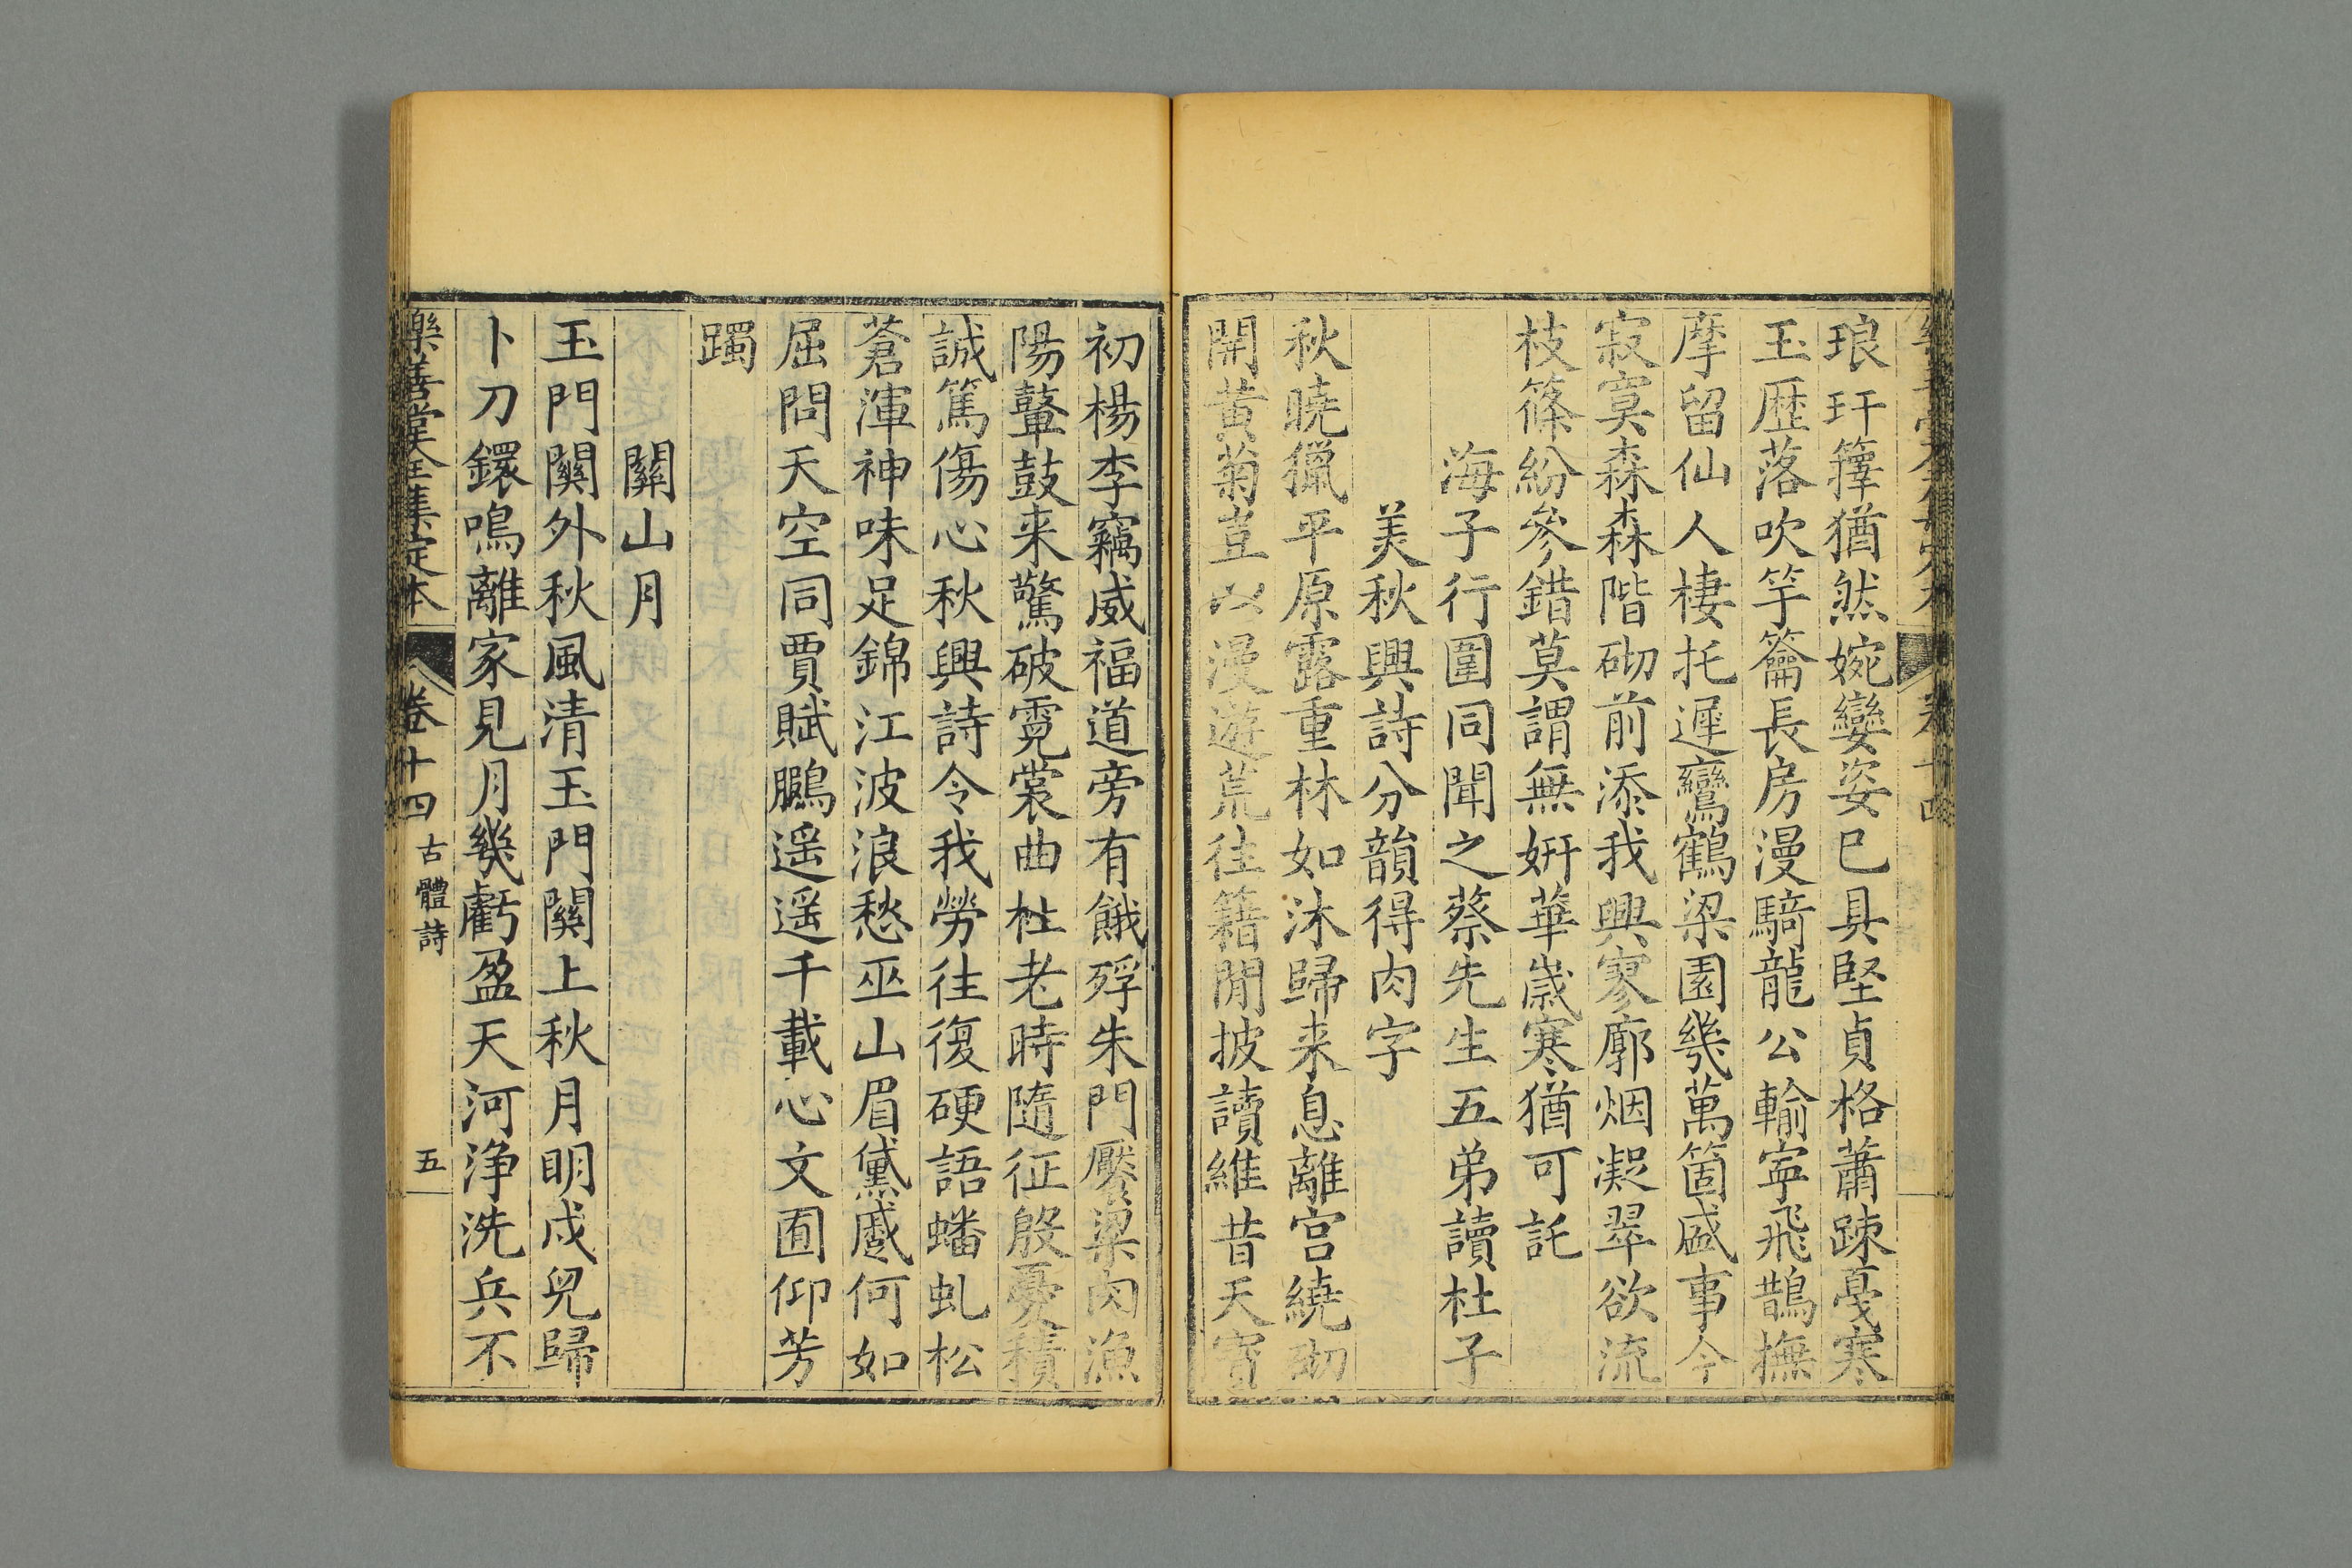 琅玕籜猶然婉孌姿已具堅貞格蕭疎戞寒
玉歴落吹竽籥長房漫騎龍公輸寧飛鵲撫
摩留仙人棲托遲鸞鶴梁園幾萬箇盛事今
寂寞森森階砌前添我興寥廓烟凝翠欲流
枝篠紛參錯莫謂無妍華嵗寒猶可託
海子行圍同聞之蔡先生五弟讀杜子
美秋興詩分韻得肉字
秋曉獵平原露重林如沐歸来息離宫繞砌
開黄菊豈以漫遊荒往籍閒披讀維昔天寶
初楊李竊威福道旁有餓殍朱門厭粱肉漁
陽鼙鼓来驚破霓裳曲杜老時隨征殷憂積
誠篤傷心秋興詩令我勞往復硬語蟠虬松
蒼渾神味足錦江波浪愁巫山眉黛蹙何如
屈問天空同賈賦鵩遥遥千載心文囿仰芳
躅
關山月
玉門關外秋風清玉門關上秋月明戍兒歸
卜刀鐶鳴離家見月幾虧盈天河浄洗兵不
樂善堂全集定本 卷十四 古體詩 五